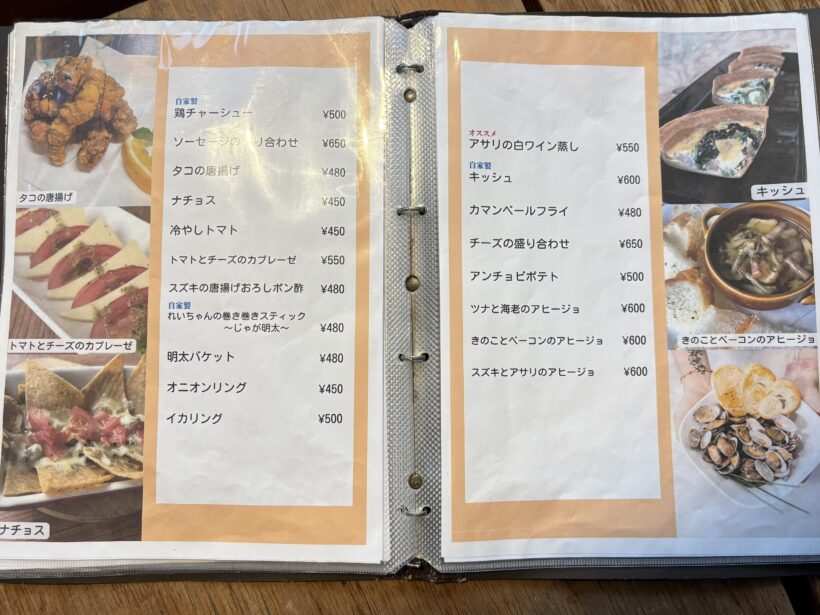 タコの唐揚げ
トマトとチーズのカプレーゼ
ナチョス
自家製
鶏チャーシュー ¥500
ソーセージの盛り合わせ ¥650
タコの唐揚げ ¥480
ナチョス ¥450
冷やしトマト ¥450
トマトとチーズのカプレーゼ ¥550
スズキの唐揚げおろしポン酢 ¥480
自家製
れいちゃんの巻き巻きスティック
～じゃが明太～ ¥480
明太バケット ¥480
オニオンリング ¥450
イカリング ¥500
オススメ
アサリの白ワイン蒸し ¥550
自家製
キッシュ ¥600
カマンベールフライ ¥480
チーズの盛り合わせ ¥650
アンチョビポテト ¥500
ツナと海老のアヒージョ ¥600
きのことベーコンのアヒージョ ¥600
スズキとアサリのアヒージョ ¥600
キッシュ
きのことベーコンのアヒージョ